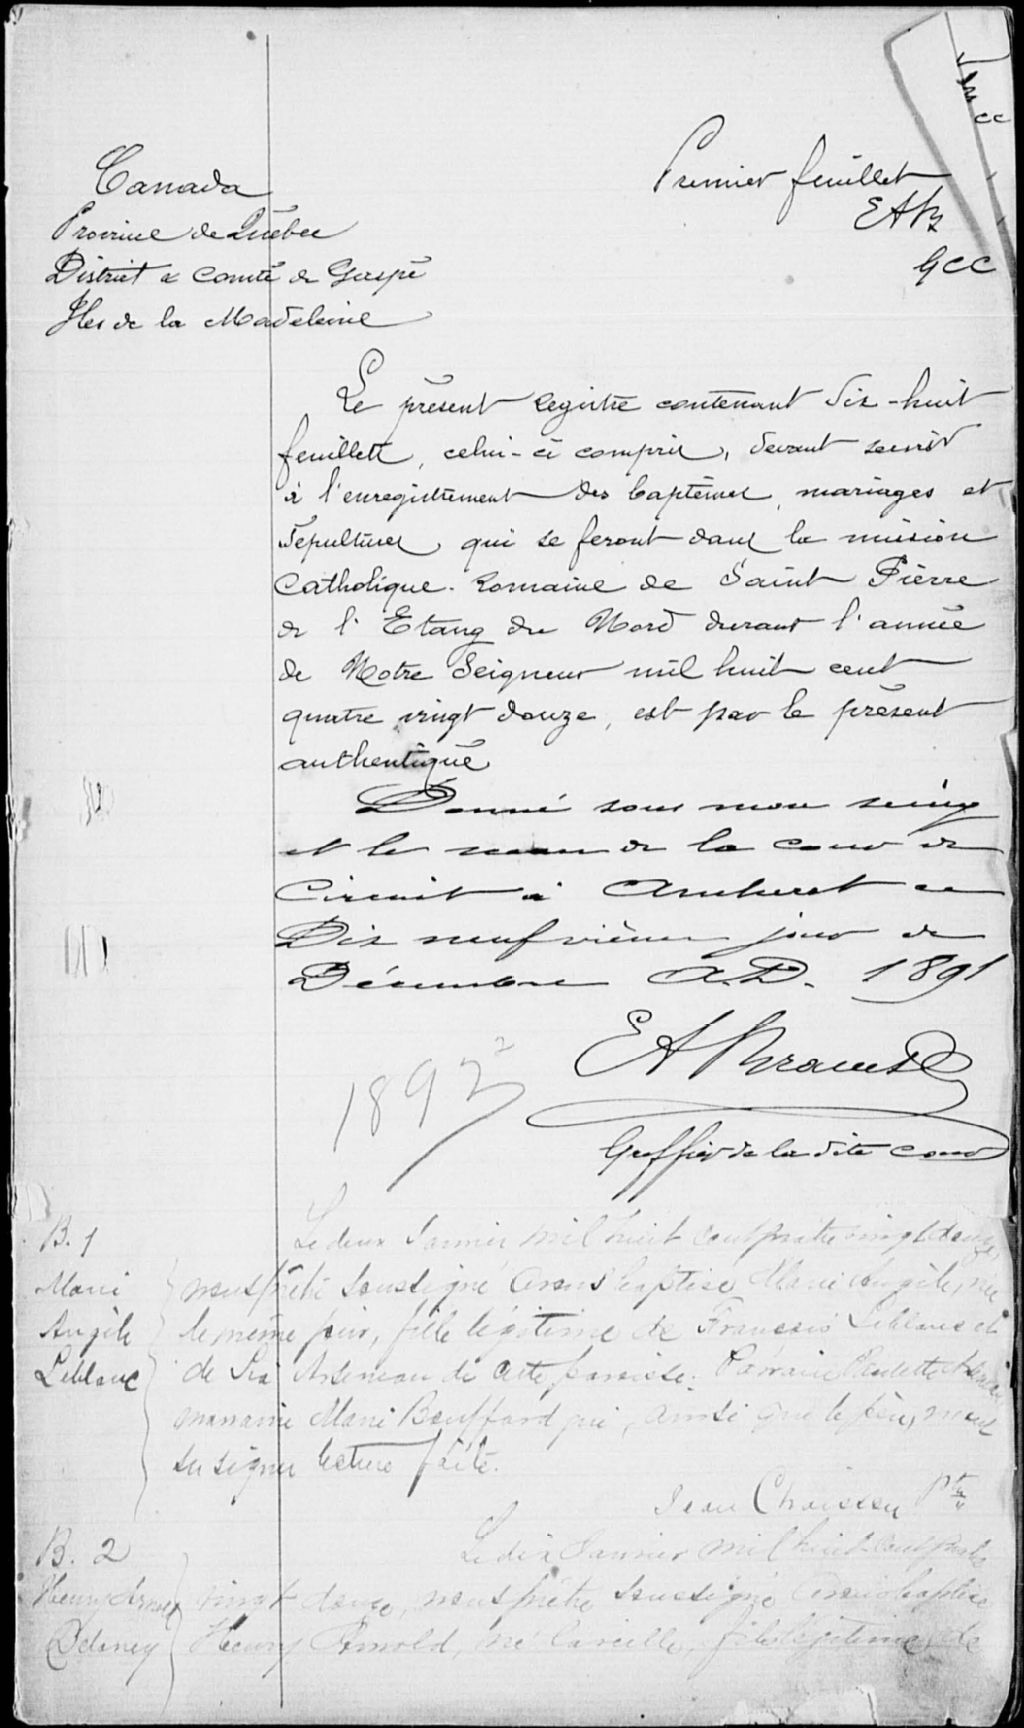 Premier feuillet
EAB
GCC
Canada
Province de Québec
District & Comté de Gaspé
Iles de la Madeleine
Le présent registre contenant dix-huit
feuillets, celui-ci compris, devant servir
à l'enregistrement des baptêmes, mariages et
sépultures, qui se feront dans la mission
Catholique-Romaine de Saint Pierre
de l'Etang du Nord durant l'année
de Notre Seigneur mil huit cent
quatre vingt douze, est par le présent
authentiqué
Donné sous mon seing
et le sceau de la cour de
Circuit à Amherst ce
Dix neufvième jour de
Décembre A.D. 1891
EA Brault
Greffier de la dite cour
1892
B. 1
Marie
Angèle
Leblanc
Le deux Janvier mil huit cent quatre vingt douze,
nous prêtre soussigné avons baptisé Marie Angèle, née
le même jour, fille légitime de François Leblanc et
de Léa Arseneau de cette paroisse. Parrain
marraine Marie Bouffard qui, ainsi que le père, n'ont
su signer lecture faite.
Jean Chaisson Ptre
B. 2
Henry Arnold
Delaney
Le dix Janvier mil huit-cent quatre
vingt douze, nous prêtre soussigné avons baptisé
Henry Arnold, né la veille, fils légitime de